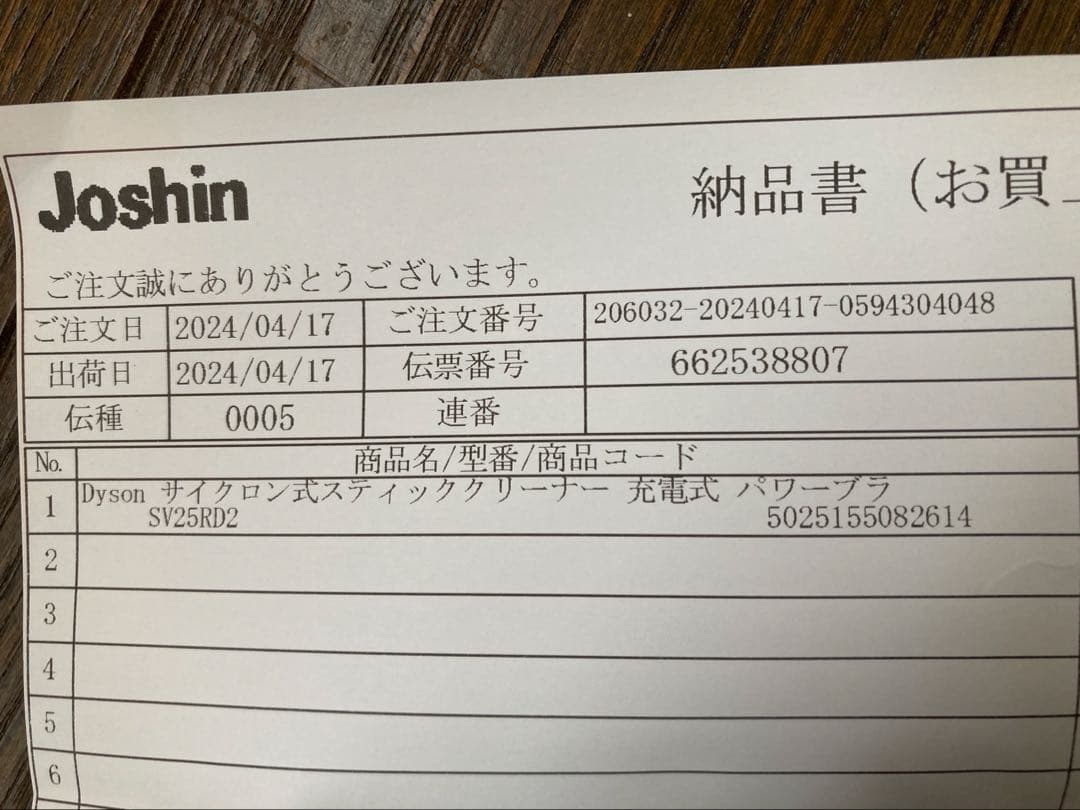 Joshin
納品書（お買
ご注文誠にありがとうございます。
ご注文日 2024/04/17 ご注文番号 206032-20240417-0594304048
出荷日 2024/04/17 伝票番号 662538807
伝種 0005 連番
No. 商品名/型番/商品コード
1 Dyson サイクロン式スティッククリーナー 充電式 パワーブラ
SV25RD2 5025155082614
2
3
4
5
6